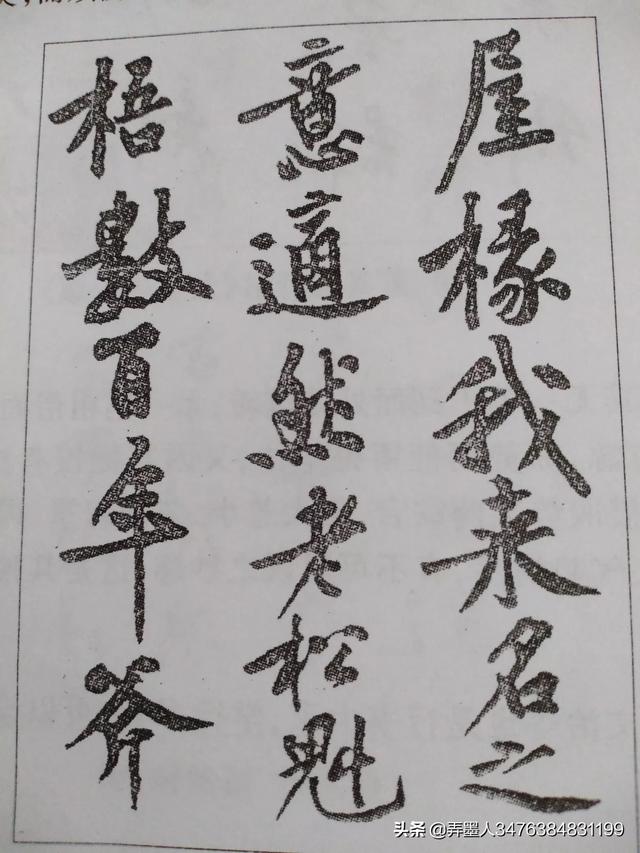 屋椽我来名之
意適然老松魁
梧數百年斧
头条 @弄墨人3476384831199